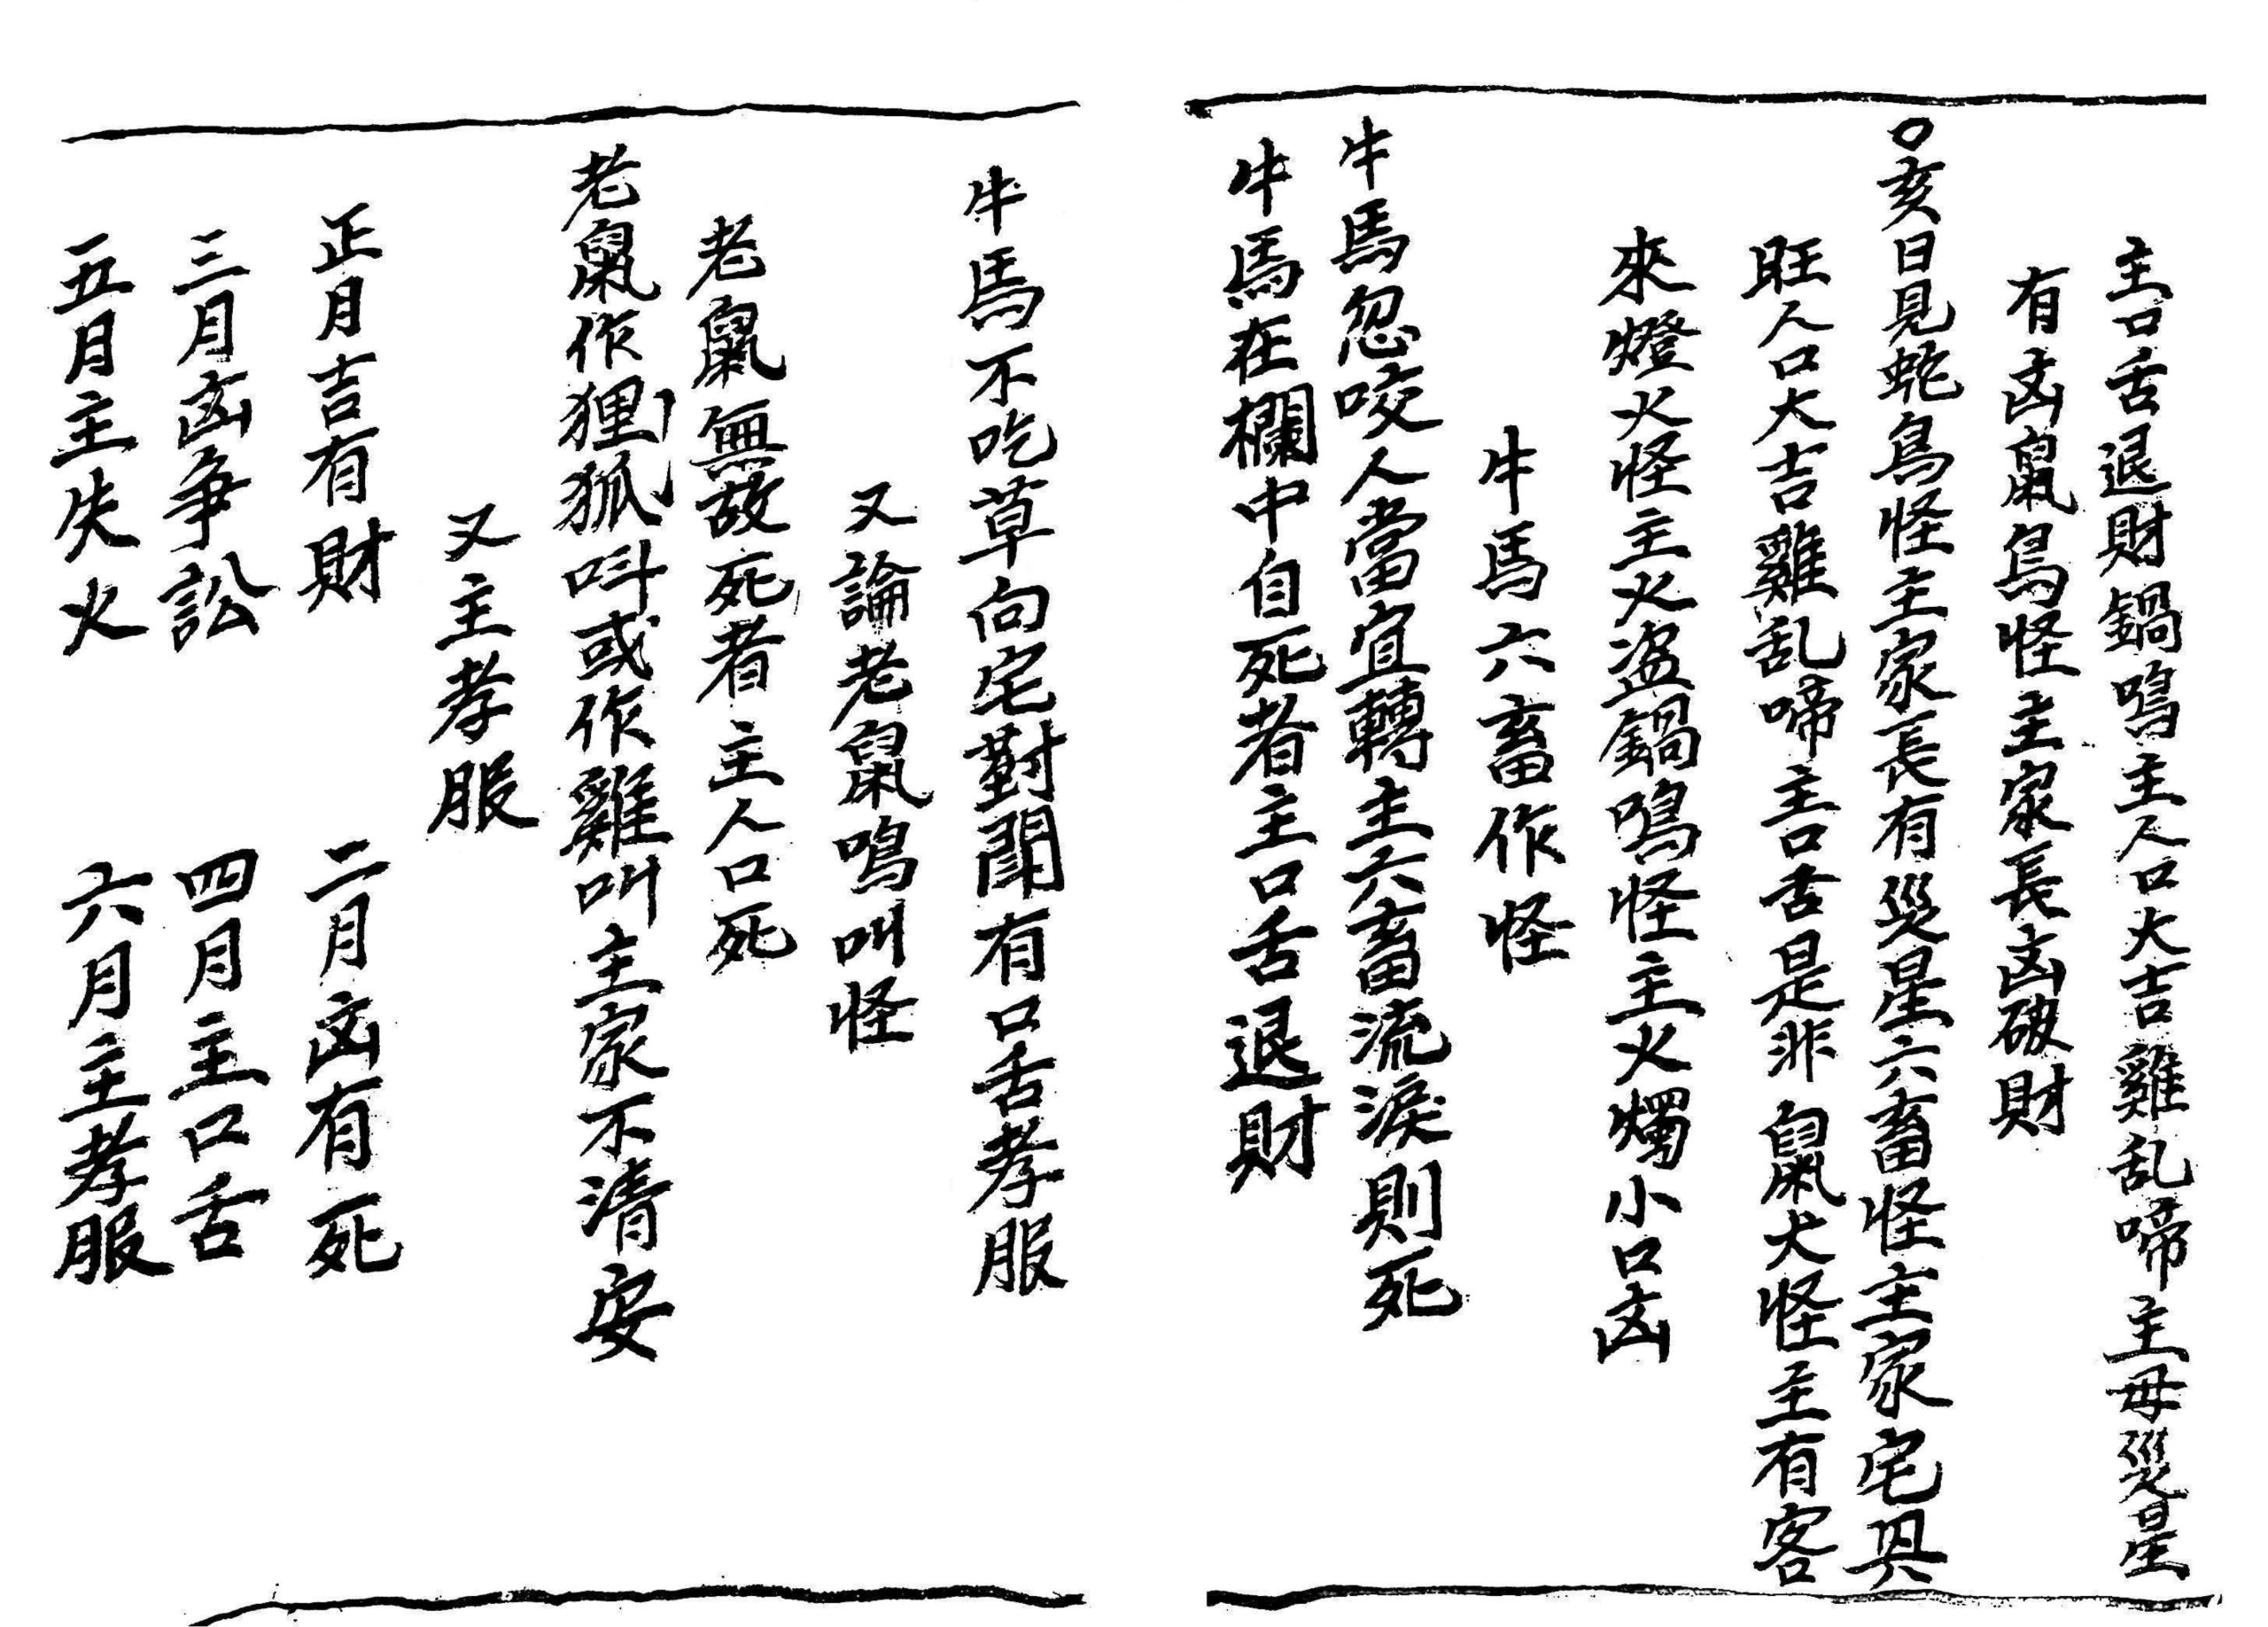 主口舌退財鍋鳴主人口大吉雞乱啼主母災星
有凶鼠鳥怪主家長凶破財
○亥日見蛇鳥怪主家長有災星六畜怪主家宅興
旺人口大吉雞乱啼主口舌是非鼠犬怪主有客
來燈火怪主火盗鍋鳴怪主火燭小口凶
牛馬六畜作怪
牛馬忽咬人當宜轉主六畜流淚則死
牛馬在欄中自死者主口舌退財
牛馬不吃草向宅對聞有口舌孝服
又論老鼠鳴叫怪
老鼠無故死者主人口死
老鼠作狸狐叫或作雞叫主家不清安
又主孝服
正月吉有財 二月凶有死
三月凶争訟 四月主口舌
五月主失火 六月主孝服